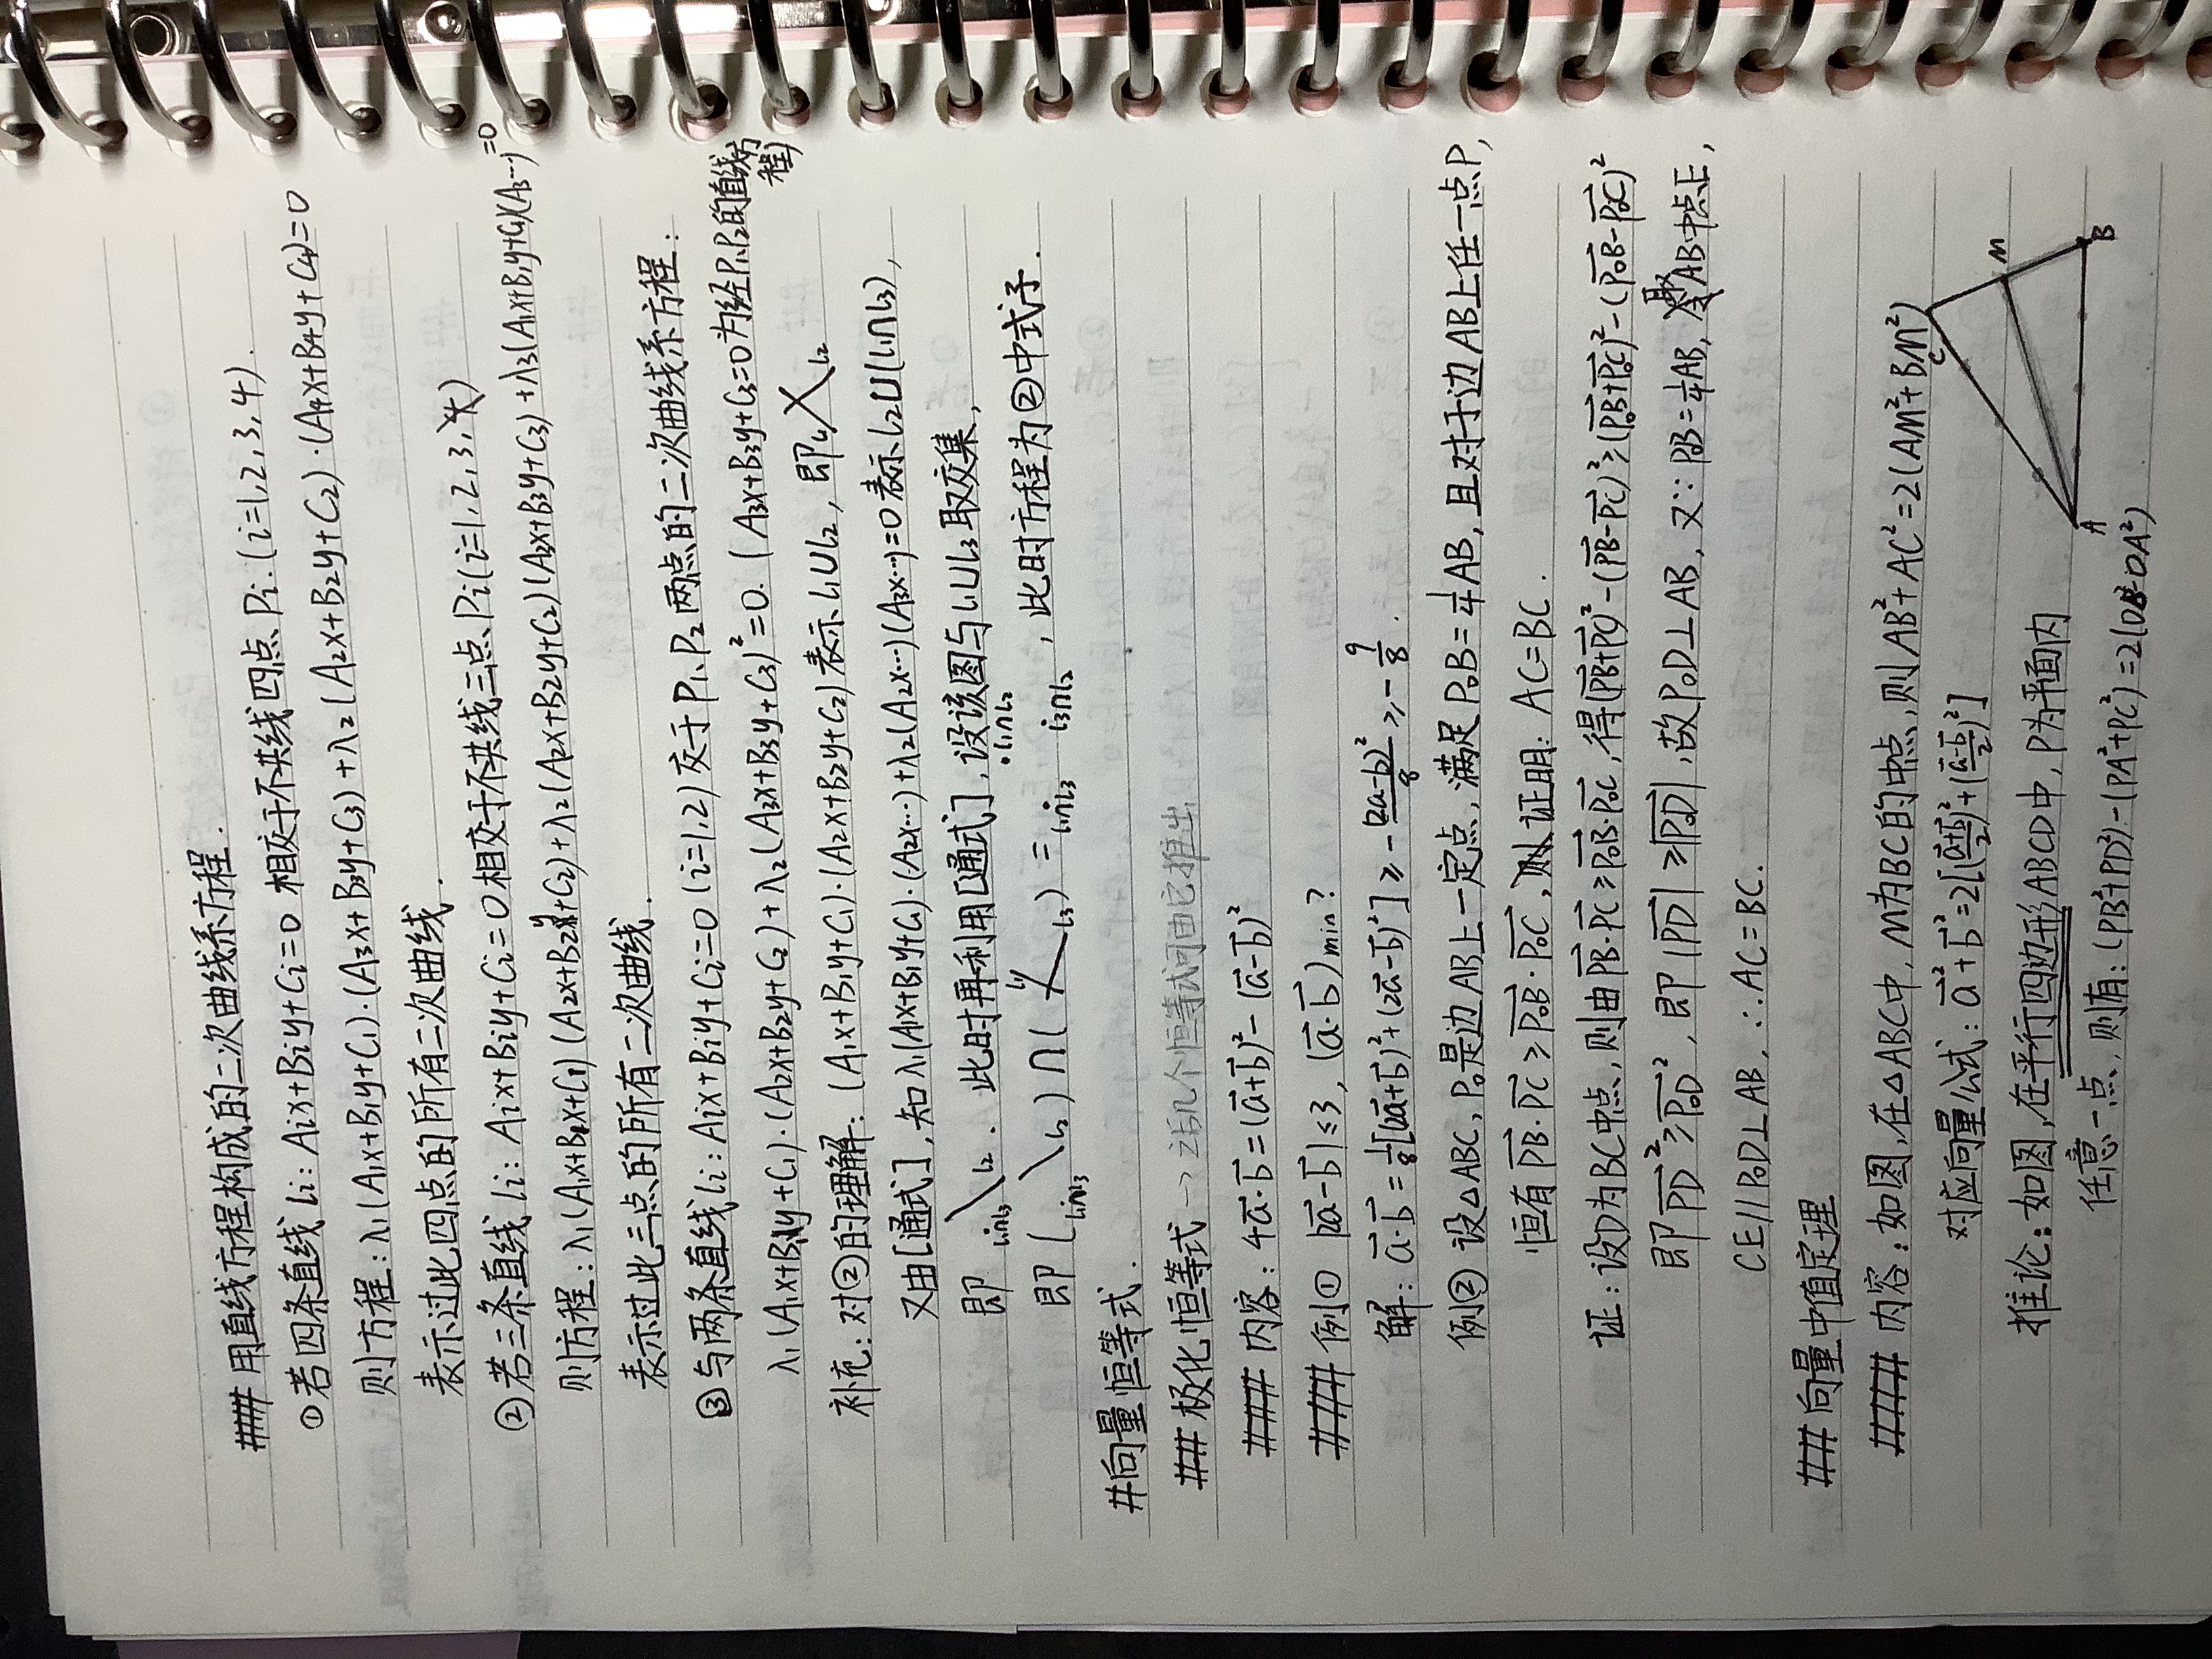 ### 用直线方程构成的二次曲线系方程.
①若四条直线 li: Aix+Biy+Ci=0 相交于不共线四点 Pi. (i=1,2,3,4).
则方程: λ1(A1x+B1y+C1)·(A3x+B3y+C3)+λ2(A2x+B2y+C2)·(A4x+B4y+C4)=0
表示过此四点的所有二次曲线.
②若三条直线 li: Aix+Biy+Ci=0 相交于不共线三点 Pi(i=1,2,3)
则方程: λ1(A1x+B1x+C1)(A2x+B2y+C2)+λ2(A2x+B2y+C2)(A3x+B3y+C3)+λ3(A1x+B1y+C1)(A3…)=0
表示过此三点的所有二次曲线.
③与两条直线 li: Aix+Biy+Ci=0 (i=1,2) 交于 P1、P2 两点的二次曲线系方程:
λ1(A1x+B1y+C1)·(A2x+B2y+C2)+λ2(A3x+B3y+C3)²=0. (A3x+B3y+C3=0 为经P1、P2的直线方程)
补充: 对②的理解: (A1x+B1y+C1)·(A2x+B2y+C2)表示 l1∪l2, 即 l1 l2
又由[通式], 知 λ1(A1x+B1y+C1)·(A2x…)+λ2(A2x…)(A3x…)=0 表示 l2∪(l1∩l3),
即 l1∩l3 l2. 此时再利用[通式], 设该图与 l1∪l3 取交集,
即( l1∩l3 l2)∩( l1 l3)= l1∩l3 l1∩l2 l3∩l2, 此时方程为②中式子.
# 向量恒等式.
## 极化恒等式 → 这几个恒等式可由它推出
### 内容: 4a⃗·b⃗=(a⃗+b⃗)²-(a⃗-b⃗)²
### 例① |2a⃗-b⃗|≤3, (a⃗·b⃗)min?
解: a⃗·b⃗=1/8[(2a⃗+b⃗)²-(2a⃗-b⃗)²]≥-(2a-b)²/8≥-9/8.
例② 设△ABC, P0是边AB上一定点, 满足P0B=1/4AB, 且对于边AB上任一点P,
恒有 PB⃗·PC⃗≥P0B⃗·P0C⃗, 证明: AC=BC.
证: 设D为BC中点, 则由PB⃗·PC⃗≥P0B⃗·P0C⃗, 得(PB⃗+PC⃗)²-(PB⃗-PC⃗)²≥(P0B⃗+P0C⃗)²-(P0B⃗-P0C⃗)²
即 PD⃗²≥P0D⃗², 即|PD⃗|≥|P0D⃗|, 故P0D⊥AB, 又∵P0B=1/4AB, 取AB中点E,
CE∥P0D⊥AB, ∴AC=BC.
## 向量中值定理
### 内容: 如图, 在△ABC中, M为BC的中点, 则AB²+AC²=2(AM²+BM²)
对应向量公式: a⃗²+b⃗²=2[(a⃗+b⃗/2)²+(a⃗-b⃗/2)²]
推论: 如图, 在平行四边形ABCD中, P为平面内
任意一点, 则有: (PB²+PD²)-(PA²+PC²)=2(OB²-OA²)
C
M
A
B